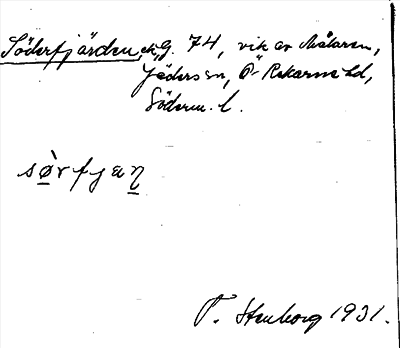 Söderfjärden, ek. G. 74, vik av Mälaren,
Jäders sn, Ö. Rekarne hd,
Söderm. l.
sòrfjæn
T. Stenborg 1931.